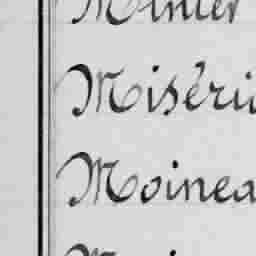 Minier
Miséri
Moinea